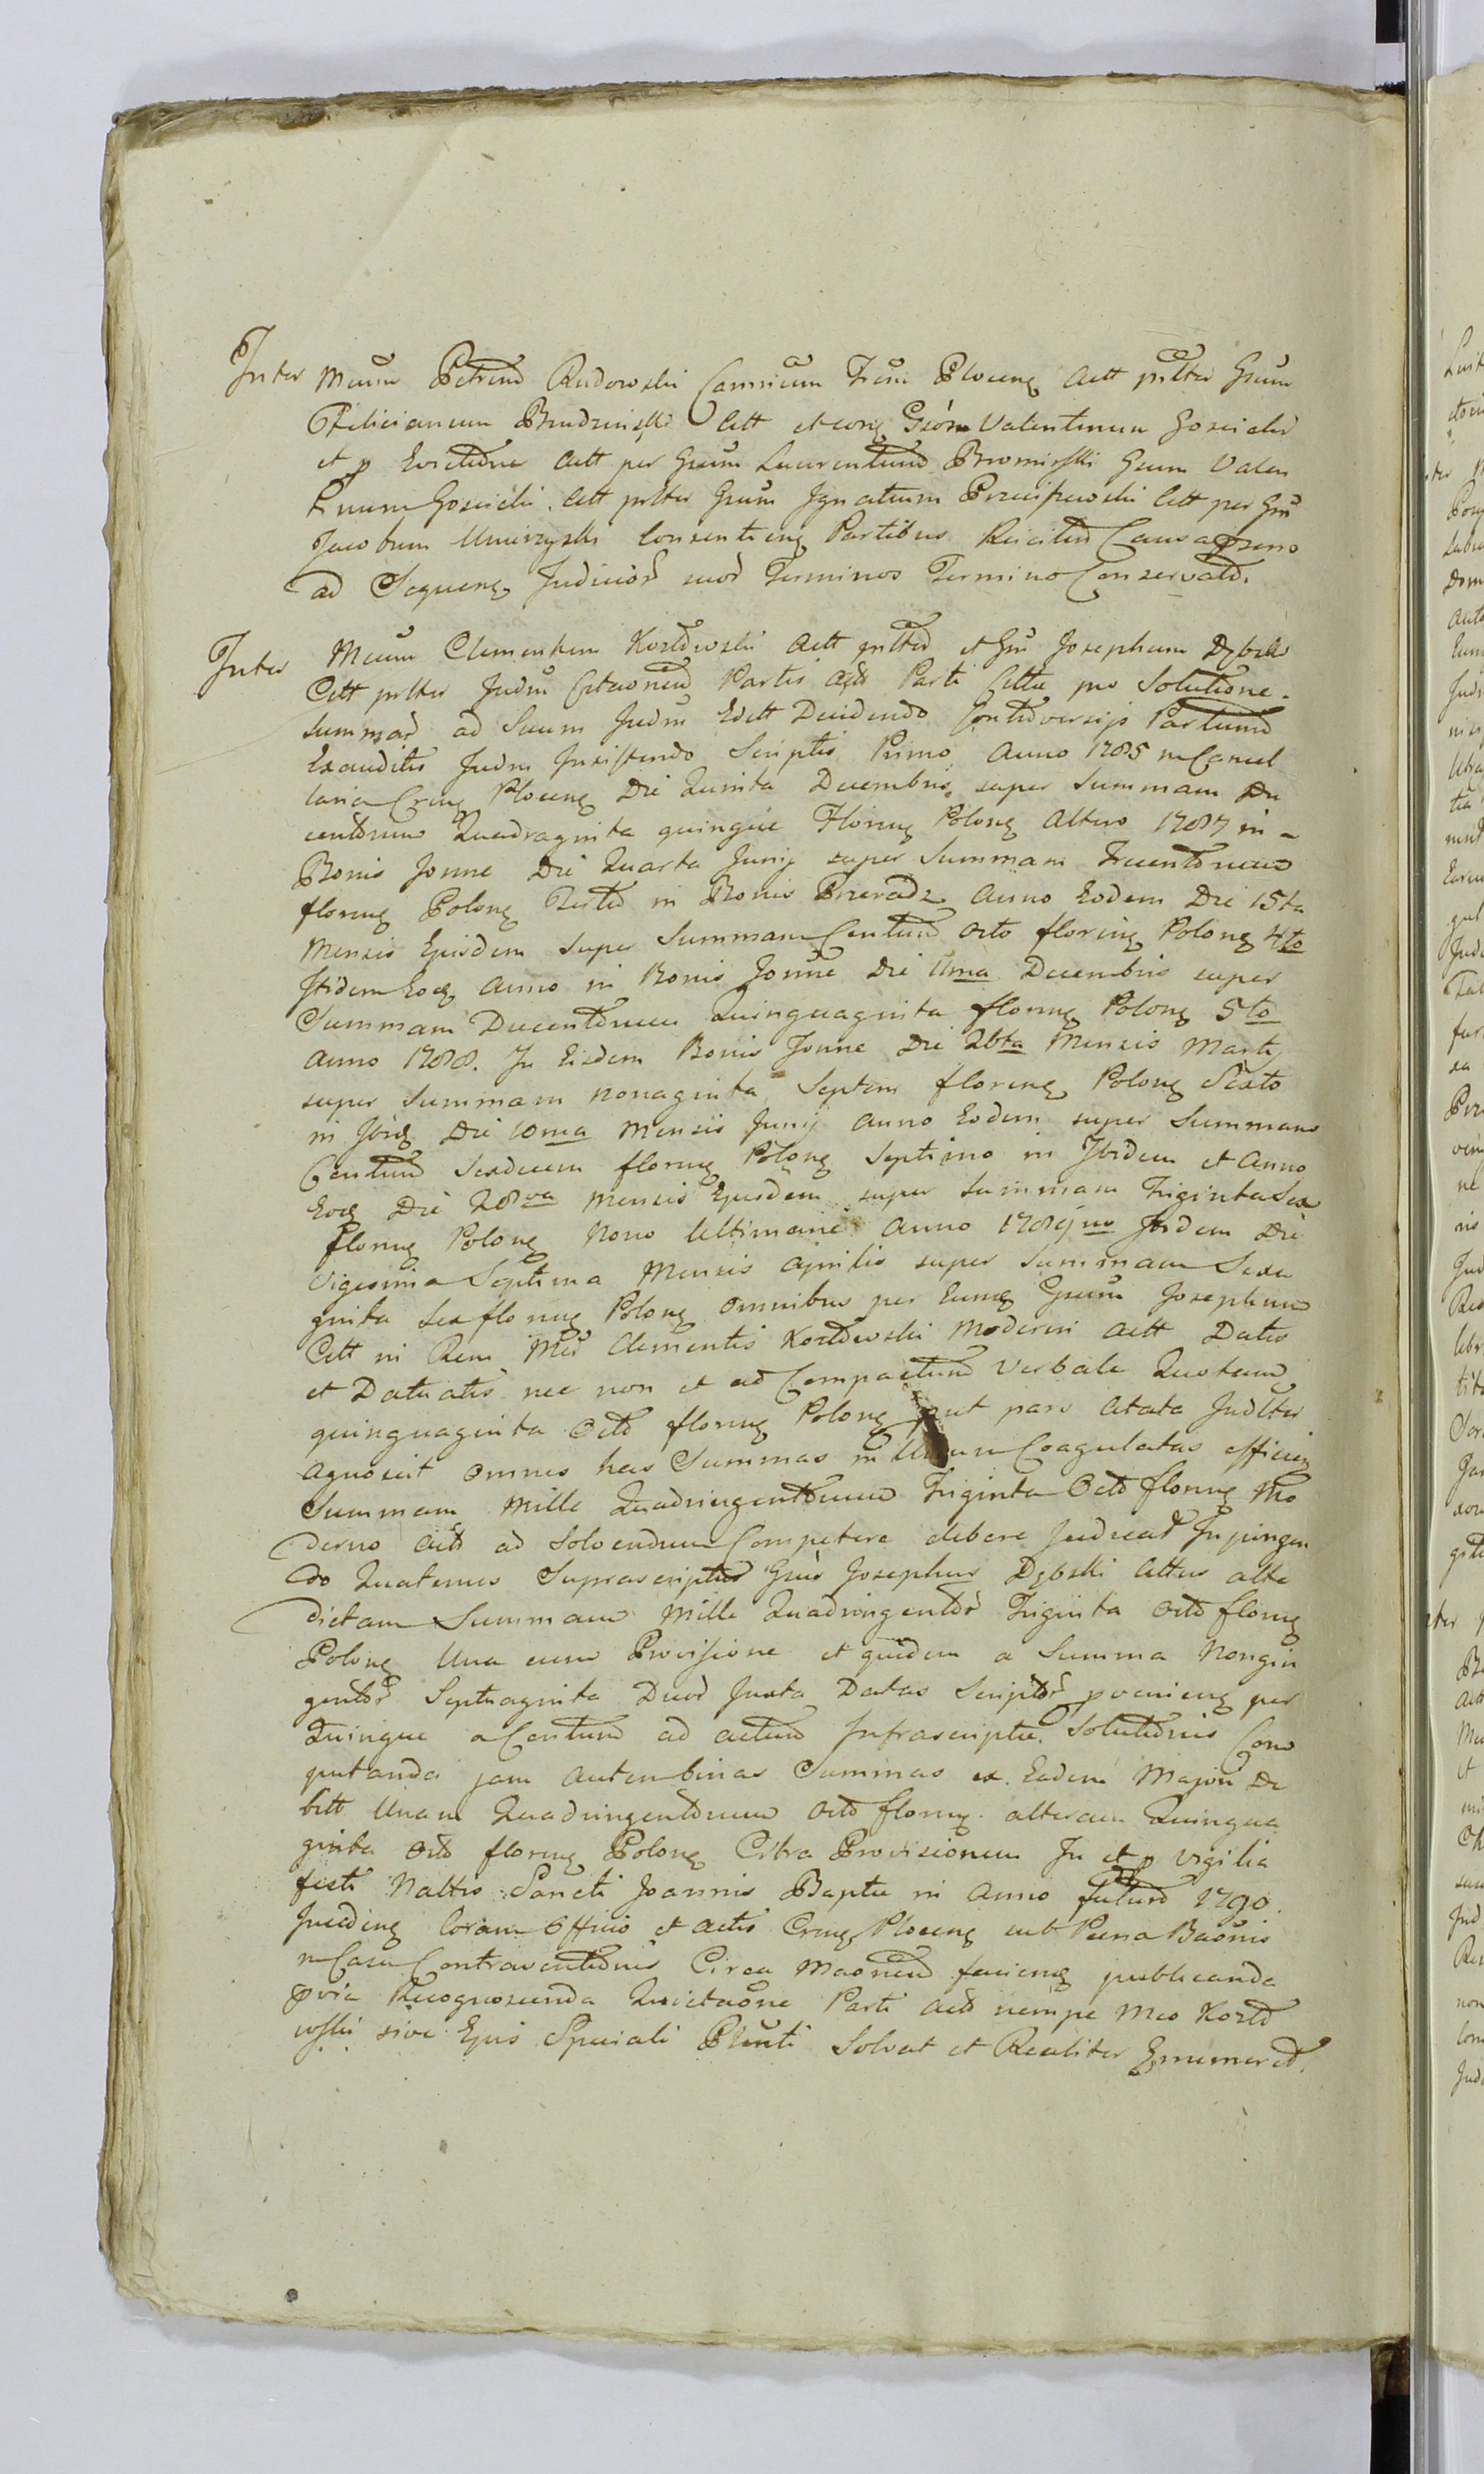 Inter Mcum Petrum Rudowski Camrium Trum Plocens Actt pnltr Gsum
Felicianum Brudzinski Citt et eong Gsóru Valentinum Goscicki
et p Evictione Actt per Gsum Laurentium Bromirski Gsum Valen
tinum Goscicki Citt pnltr Gsum Ignatium Przeciszewski Citt per Gsu
Jacobum Umirzyski Consentieng Partibus Reicitur Causa
ad Sequeng Judicior suor Terminos Termino Conservato.
Inter Mcum Clementem Kozłowski Actt pnltr et Gsu Josephum Dębski
Citt pnltr Judm Citaonem Partis Acto Parti Cittu pro Solutione
Summar ad Suum Judm Editt Decidendo Controversijs Partium
Exauditis Judm Insistendo Scriptis Primo Anno 1785 in Cancel
laria Crens Plocens Die Quinta Decembris super Summam Du
centorum Quadraginta quinque Floreng Polong Altero 1787 in
Bonis Jonne Die Quarta Junij super Summam Trecentorum
floreng Polong Tertio in Bonis Przeradz Anno Eodem Die 15ta
Mensis Ejusdem super Summam Centum Octo floreng Polong 4to
Itidem Eoq Anno in Bonis Jonne Die 11ma Decembris super
Summam Ducentorum Quinquaginta floreng Polong 5to
Anno 1788. In Eisdem Bonis Jonne Die 26ta Mensis Martij
super Summam nonaginta Septem floreng Polong Sexto
in Iisd Die 10ma Mensis Junij Anno Eodem super Summam
Centum Sexdecem floreng Polong Septimo in Ibidem et Anno
Eoq Die 28va Mensis Ejusdem super Summam Triginta Sex
floreng Polong Nono Ultimarie Anno 1789no Ibidem Die
Vigesima Septima Mensis Aprilis super Summam Sexa
ginta sex floreng Polong omnibus per Eumq Gsum Josephum
Citt in Rem Mci Clementis Kozłowski Moderni Actt Datis
et Datuatis nec non et ad Compactum Verbale Quotum
quinquaginta Octo floreng Polong put pars Citata Judltr
agnoscit omnes has Summas in Unum Coagulatas efficieng
Summam Mille Quadringentorum Triginta Octo floreng Mo
derno Acto ad Solvendum Competere debere Judicat Injungen
do Quatenus Suprascriptus Gsus Josephus Dębski Cittus alte
dictam Summam Mille Quadringentor Triginta octo floreng
Polong Una cum Provisione et quidem a Summa Nongin
gentor Septuaginta Duor Juxta Datas Scriptor pveniens per
Quinque a Centum ad actum Infrascriptae Solutionis Com
putanda jam autem binas Summas ex Eadem Majori De
bitt Unam Quadringentorum octo floreng alteram Quinqua
ginta Octo floreng Polong Citra Provisionem In et p vigilia
festi Naltis Sancti Joannis Baptae in Anno futuro 1790.
Incideng Coram Officio et Actis Creng Ploceng sub Paena Baonis
in Casu Contraventionis Circa Maonem facieng publicanda
pvia Recognoscenda Quietaone Parti Acto nempe Mco Kozło
wski sive Ejus Speciali Plenti Solvat et Realiter Enumeret.